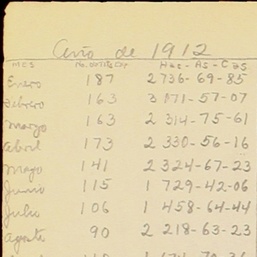 Año de 1912
MES No. ENTIERROS Has - As - Cas
Enero 187 2 736 - 69 - 85
Febrero 163 3 171 - 57 - 07
Marzo 163 2 314 - 75 - 61
Abril 173 2 330 - 56 - 16
Mayo 141 2 324 - 67 - 23
Junio 115 1 729 - 42 - 06
Julio 106 1 458 - 64 - 44
Agosto 90 2 218 - 63 - 23